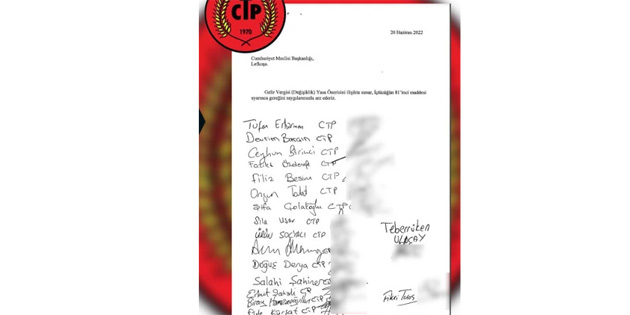 CTP
1970
20 Haziran 2022
Cumhuriyet Meclisi Başkanlığı,
Lefkoşa.
Gelir Vergisi (Değişiklik) Yasa Önerisini ilişikte sunar, İçtüzüğün 81'inci maddesi
uyarınca gereğini saygılarımızla arz ederiz.
Tufan Erhürman CTP
Devrim Barçın CTP
Ceyhun Birinci CTP
CTP
Filiz Besim CTP
Ongun Talat CTP
CTP
Sıla Usar CTP
Ürün Solyalı CTP
Doğuş Derya CTP
Salahi Şahiner CTP
CTP
CTP
Teberrüken
ULUÇAY
Fikri Toros